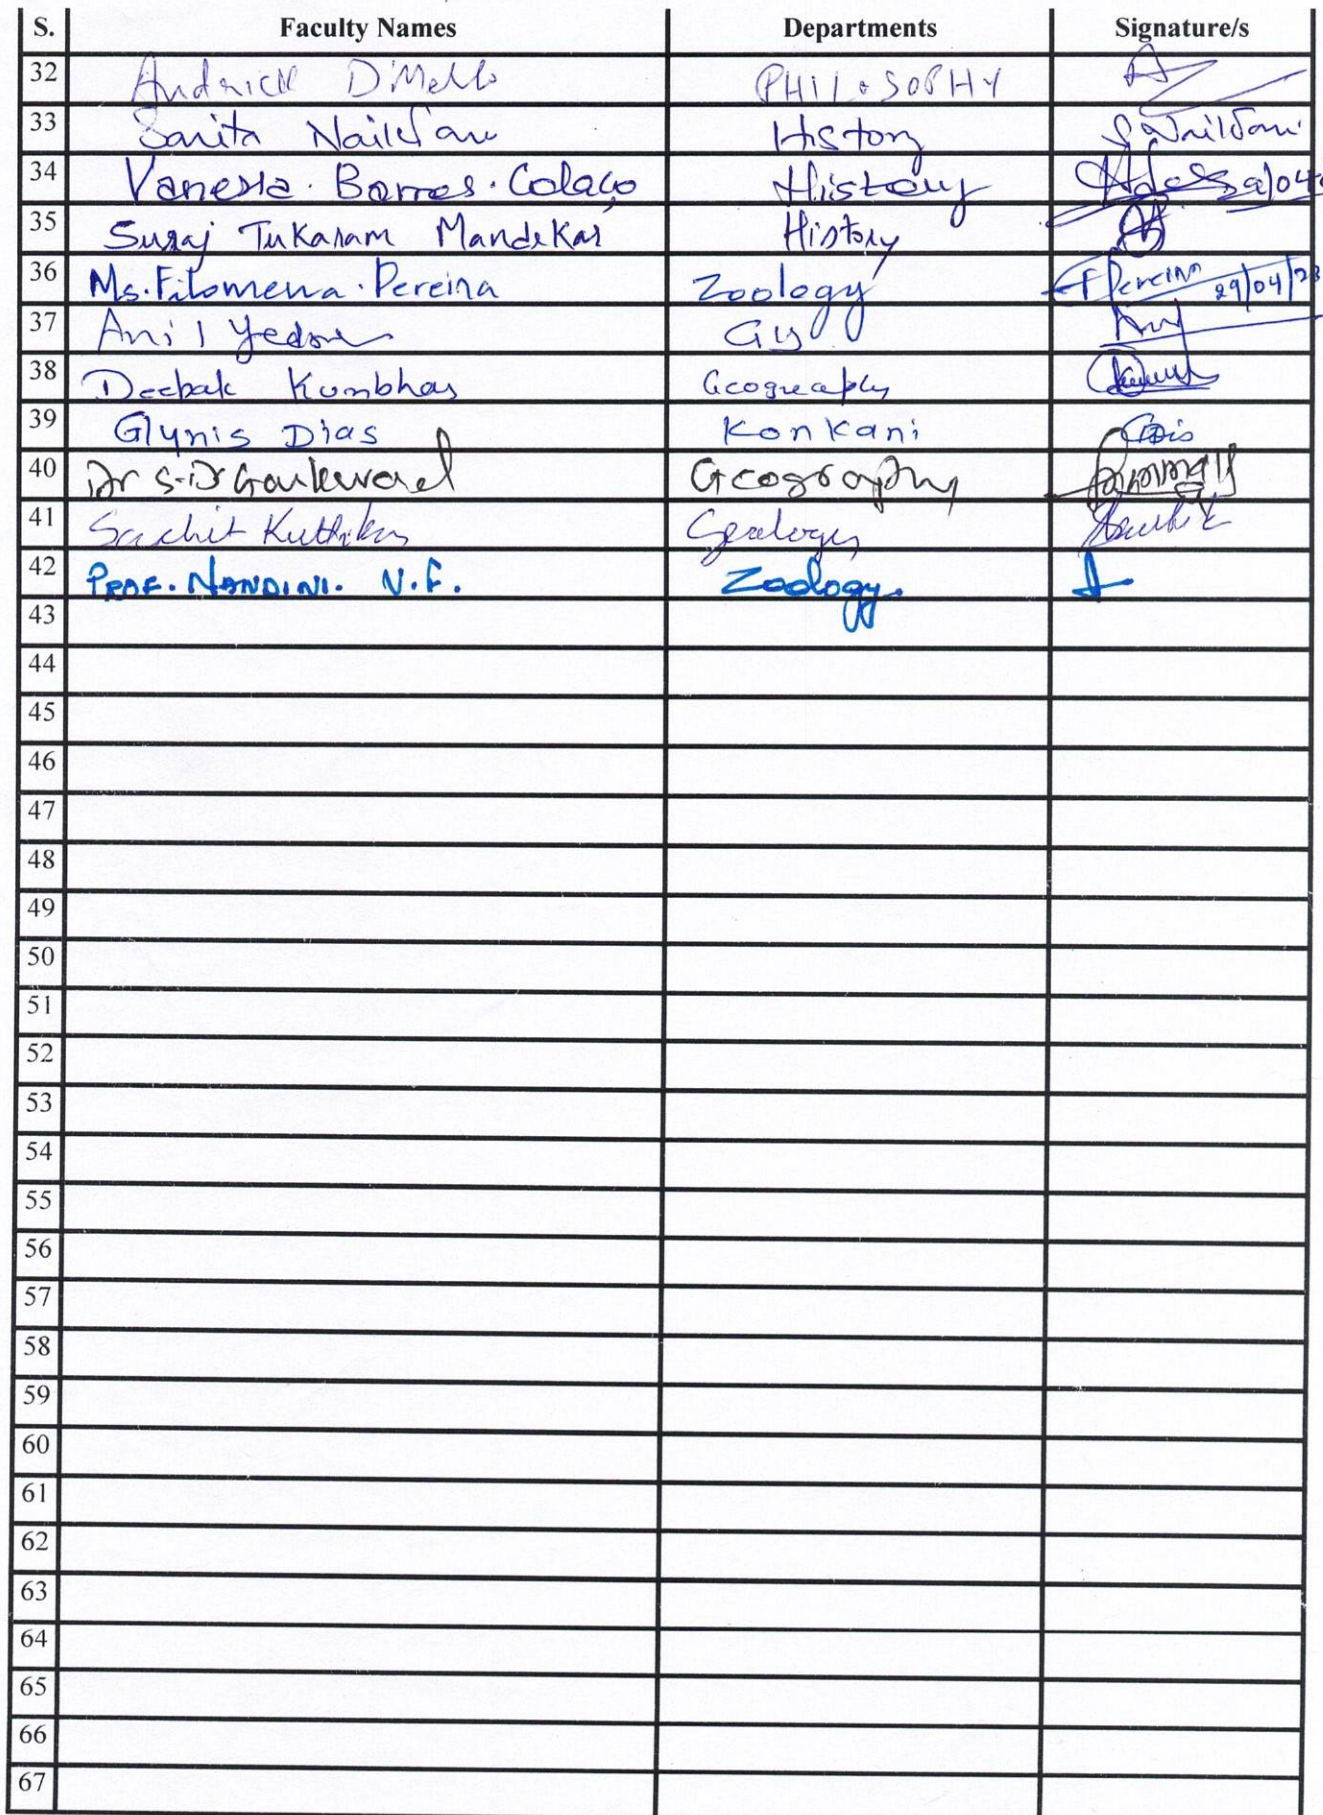 S. Faculty Names Departments Signature/s
32 Andrick D'Mello PHILOSOPHY
33 Sarita Naik History
34 Vanessa. Barros. Colaço History
35 Suraj Tukaram Mandrekar History
36 Ms. Filomena. Pereira Zoology F Pereira 29/04/23
37 Anil Yedave Gy
38 Deepak Kumbhar Geography
39 Glynis Dias Konkani
40 Dr S. D Gaikwad Geography
41 Sachit Geology
42 PROF. NANDINI. V.F. Zoology.
43
44
45
46
47
48
49
50
51
52
53
54
55
56
57
58
59
60
61
62
63
64
65
66
67